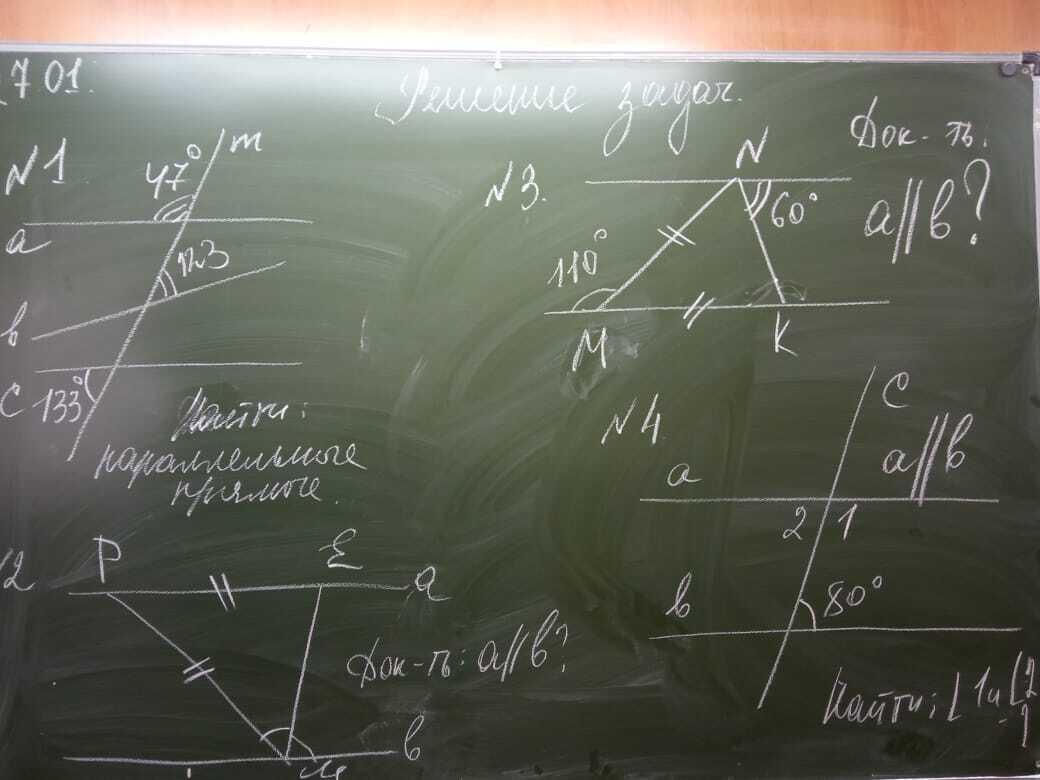 7 01.
Решение задач.
N1
47°
m
a
123
b
c
133°
Найти:
параллельные
прямые.
2
P
E
a
Док-ть: a||b?
b
M
N3.
N
Док-ть:
a||b?
60°
110°
M
K
N4
c
a||b
a
2
1
b
80°
Найти: ∠1 и ∠2